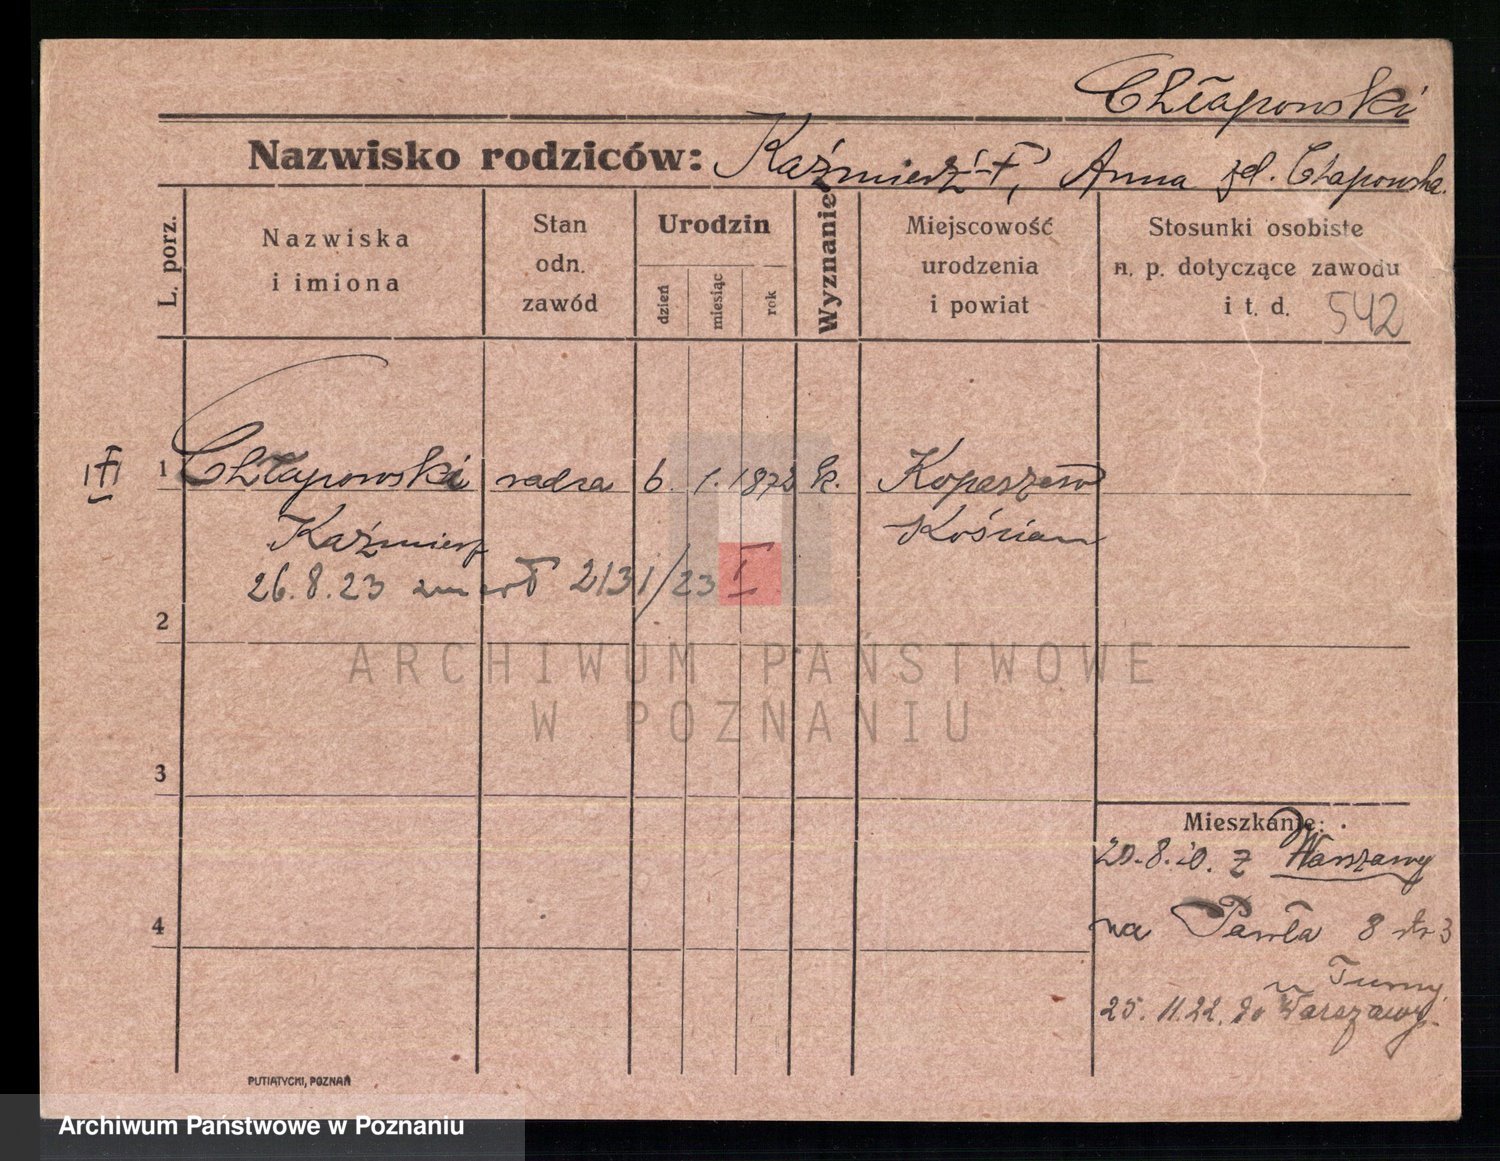 Chłapowski
Nazwisko rodziców: Kaźmierz †, Anna zd. Chłapowska.
L. porz.
Nazwiska
i imiona
Stan
odn.
zawód
Urodzin
dzień
miesiąc
rok
Wyznanie
Miejscowość
urodzenia
i powiat
Stosunki osobiste
n. p. dotyczące zawodu
i t. d.
542
1 Chłapowski radza 6. 1. 1872 k. Kopaszewo
Kaźmierz Kościan
26.8.23 zmarł 2131/23 I
2
ARCHIWUM PAŃSTWOWE
W POZNANIU
3
Mieszkanie:
20.8.20. z Warszawy
na Pawła 8 ptr 3
u Turny.
4
25.11.22. do Warszawy.
PUTIATYCKI, POZNAŃ
Archiwum Państwowe w Poznaniu